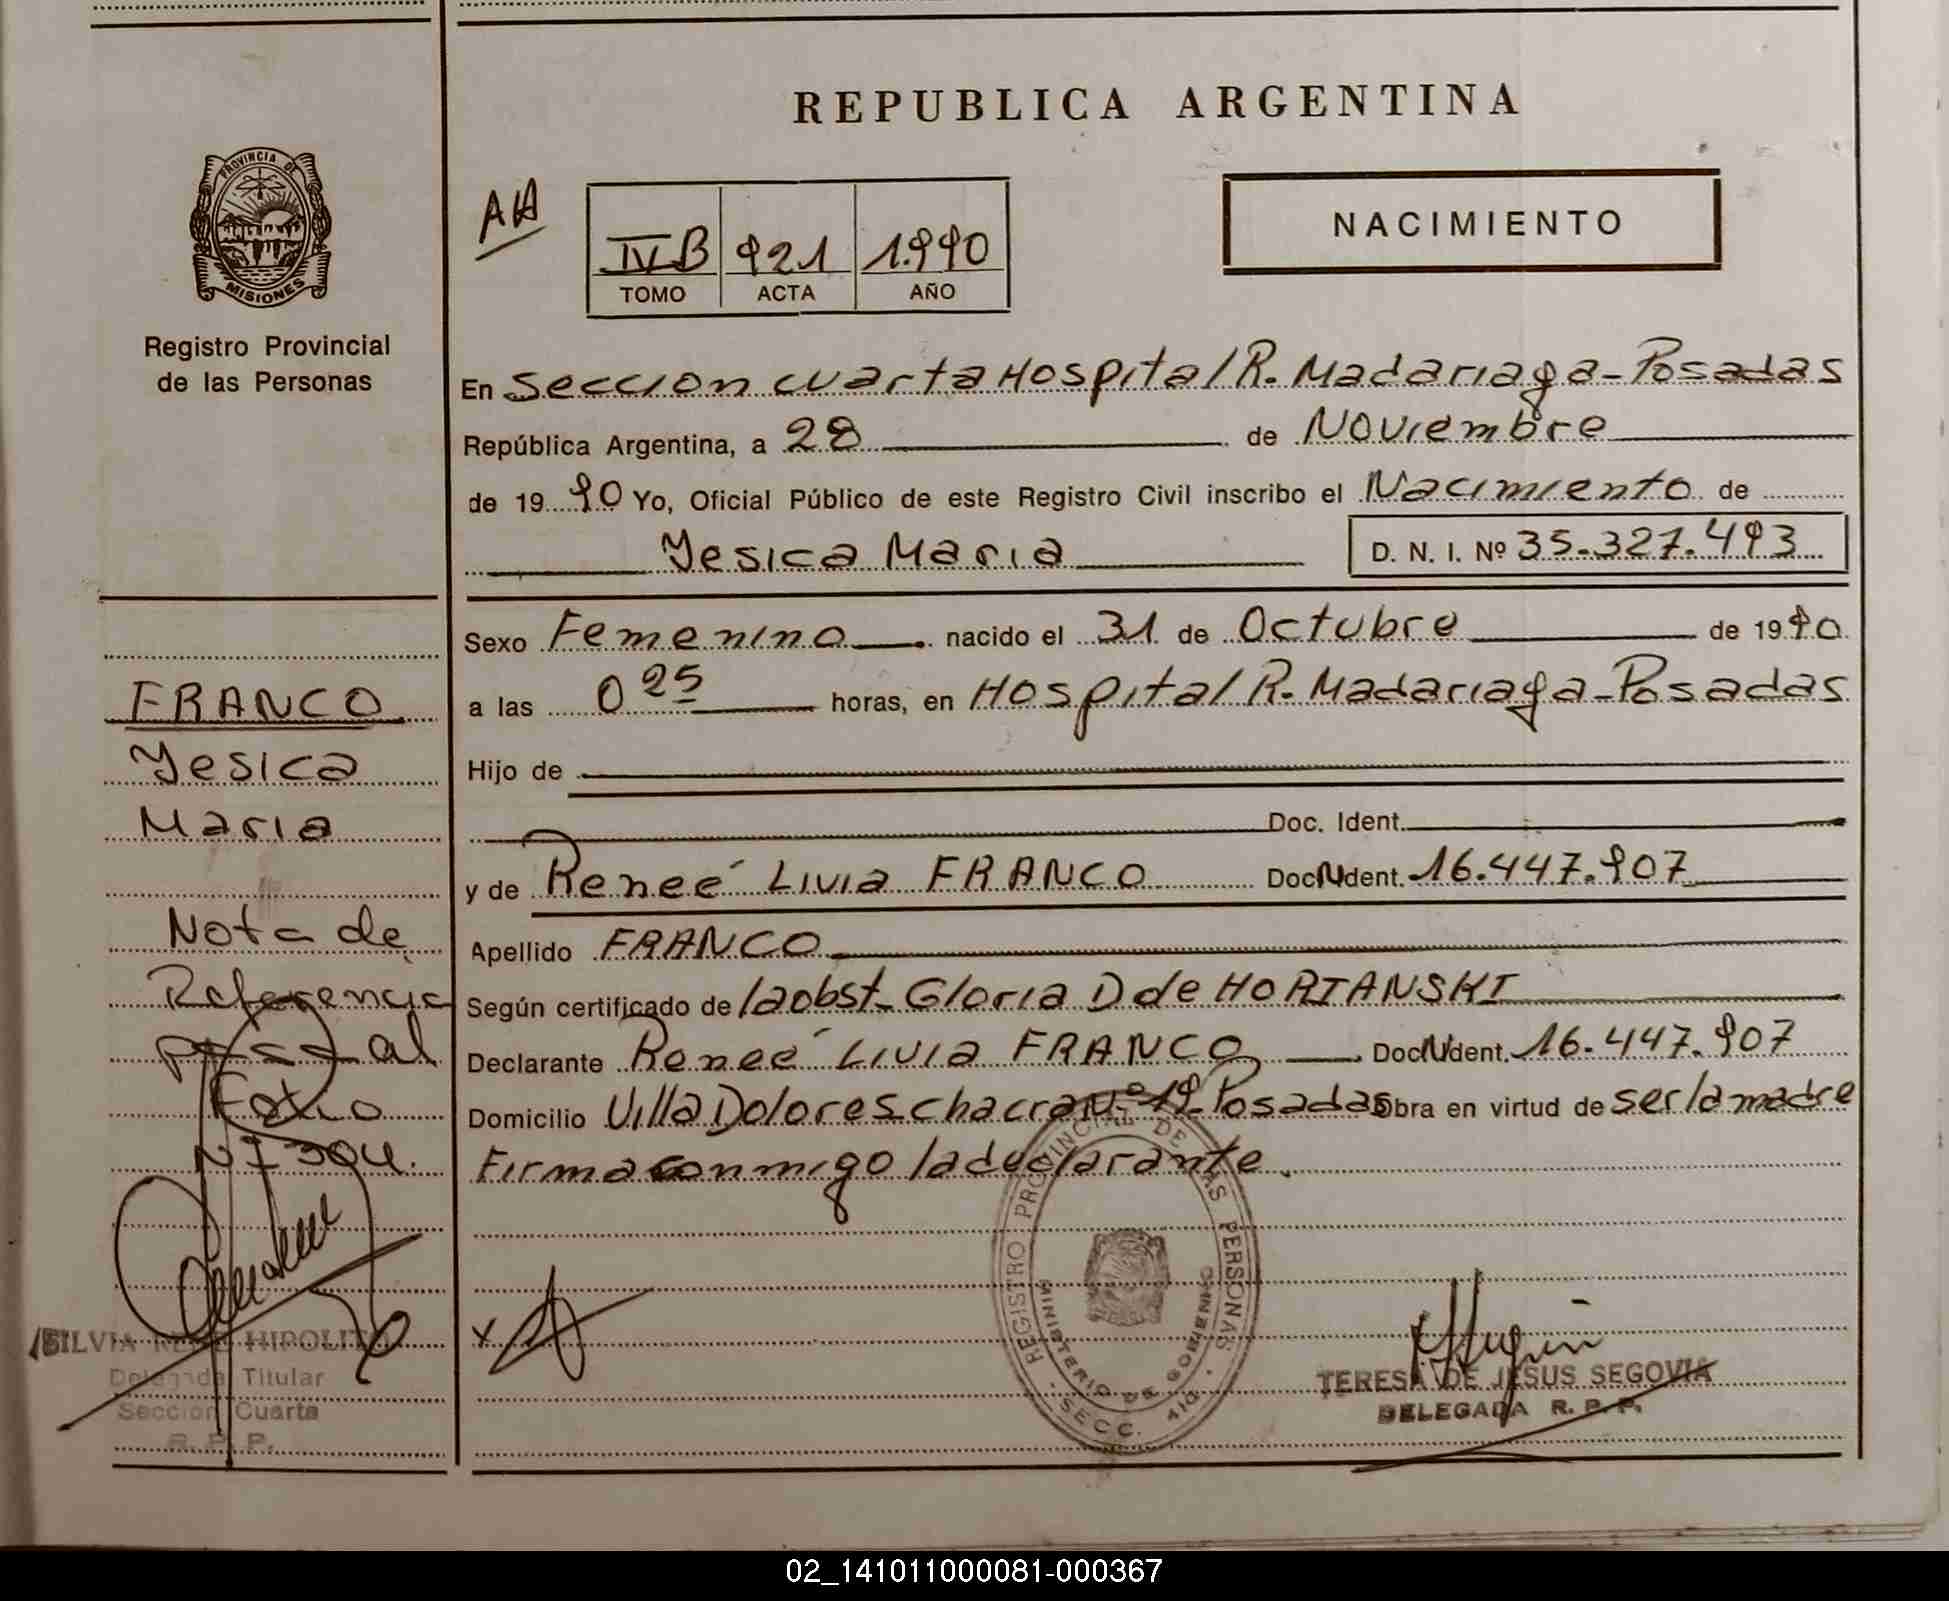 REPUBLICA ARGENTINA
PROVINCIA DE
MISIONES
Registro Provincial
de las Personas
AA
IVB 921 1.990
TOMO ACTA AÑO
NACIMIENTO
En Seccion cuarta Hospital R. Madariaga-Posadas
República Argentina, a 28 de Noviembre
de 19 90 Yo, Oficial Público de este Registro Civil inscribo el Nacimiento de
Yesica Maria D. N. I. Nº 35.327.493
Sexo Femenino nacido el 31 de Octubre de 19 90
a las 0 25 horas, en Hospital R. Madariaga-Posadas
Hijo de
Doc. Ident.
y de Reneé Livia FRANCO Doc. Ident. 16.447.907
Apellido FRANCO
Según certificado de la obst. Gloria D de HORIANSKI
Declarante Reneé Livia FRANCO Doc. Ident. 16.447.907
Domicilio Villa Dolores chacra Nº 19-Posadas Obra en virtud de ser la madre
Firma conmigo la declarante.
FRANCO
Yesica
Maria
Nota de
Referencia
pasa al
Folio
Nº 304.
SILVIA RENE HIPOLITO
Delegada Titular
Sección Cuarta
R. P. P.
X
REGISTRO PROVINCIAL DE LAS PERSONAS
MINISTERIO DE GOBIERNO
SECC. 4ta.
TERESA DE JESUS SEGOVIA
DELEGADA R. P. P.
02_141011000081-000367